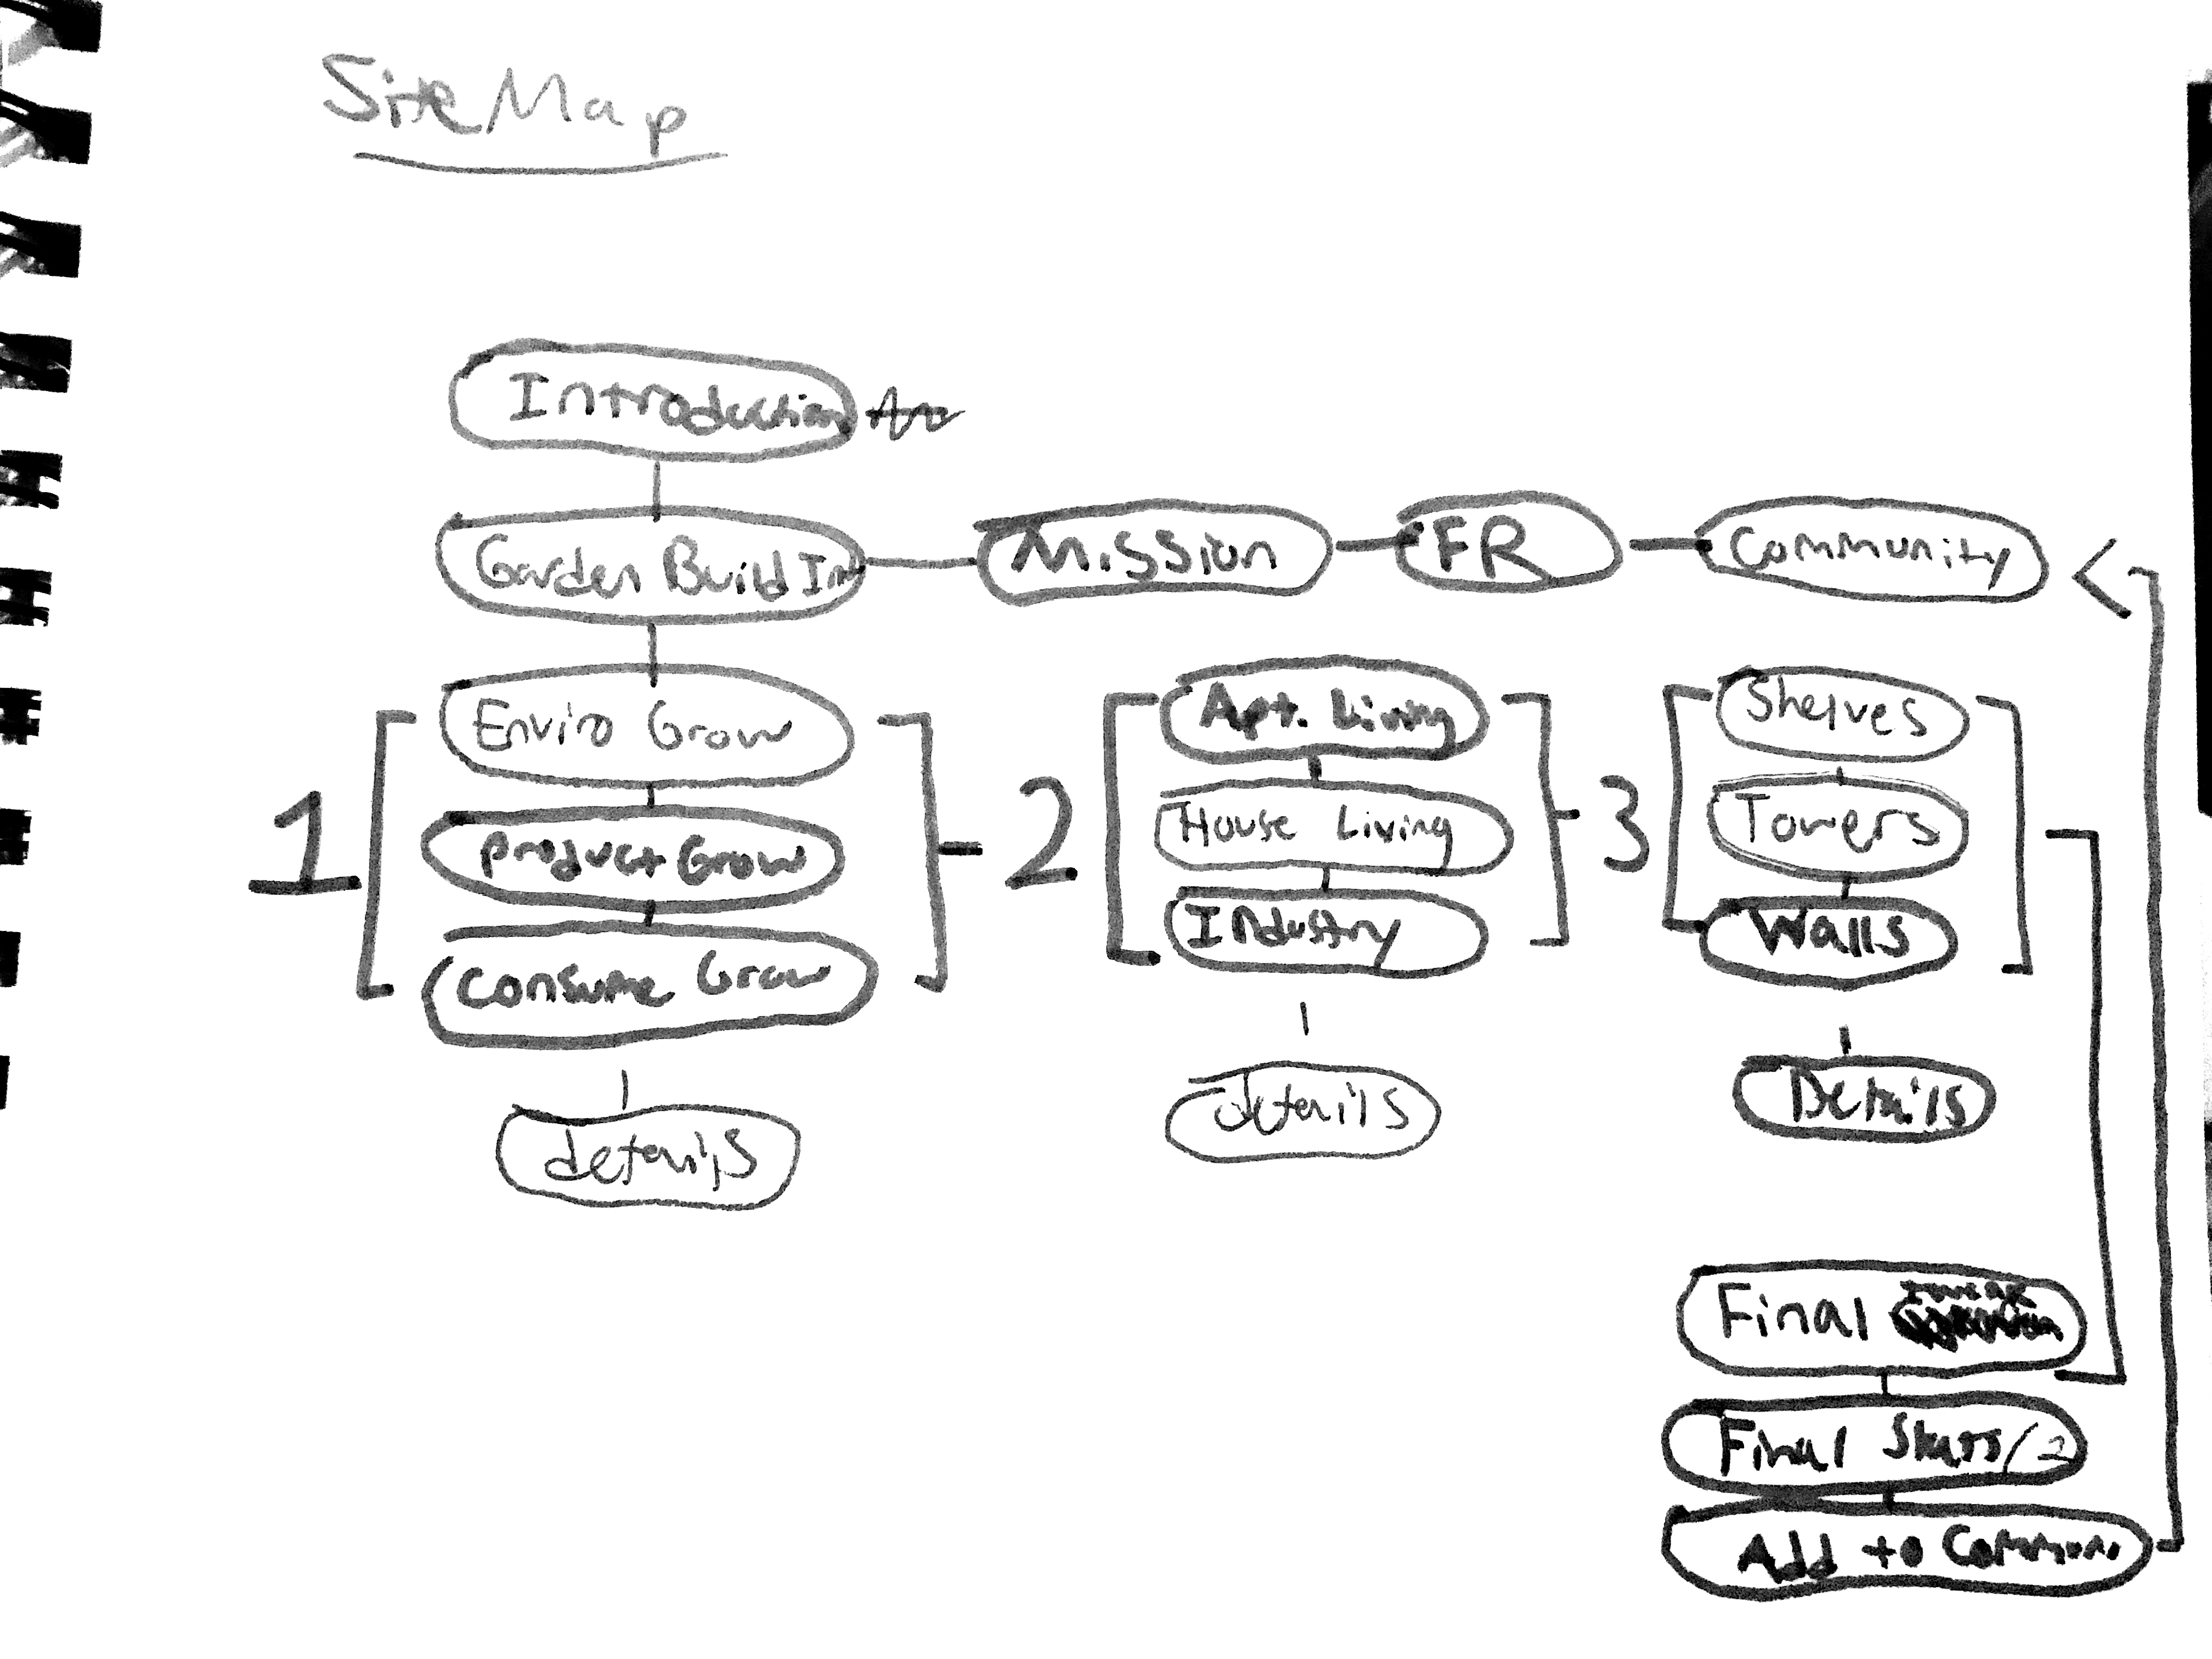 Site Map
Introduction
Garden Build In
Mission
FR
Community
1
Enviro Grow
Product Grow
Consume Grow
details
2
Apt. Living
House Living
Industry
details
3
Shelves
Towers
Walls
Details
Final
Final Stats/2
Add to Commun